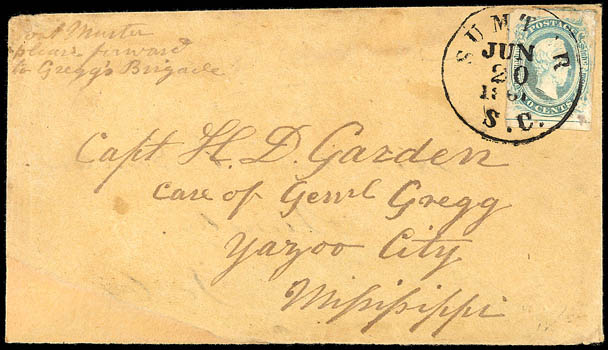 Post Master
please forward
to Gregg's Brigade
SUMTER
JUN
20
S.C.
POSTAGE
CENTS
Capt H. D. Garden
care of Genrl Gregg
Yazoo City
Missisippi